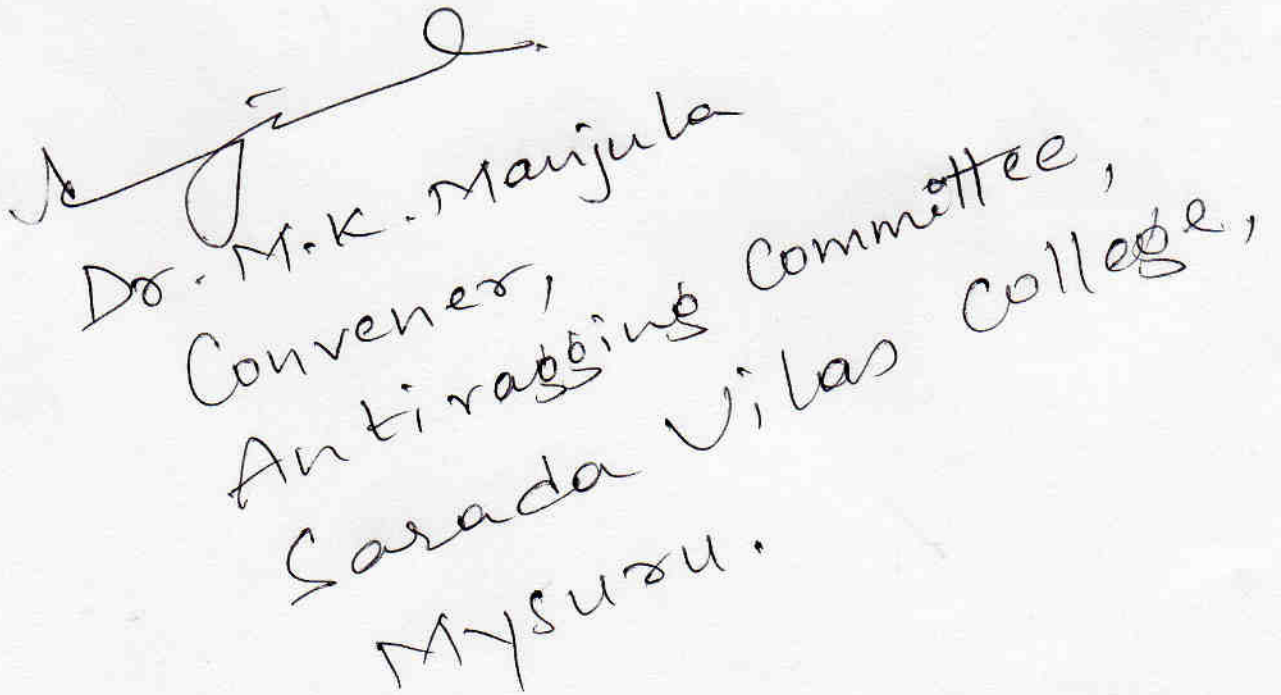 Dr. M.K. Manjula
Convener,
Antiragging Committee,
Sarada Vilas College,
Mysuru.